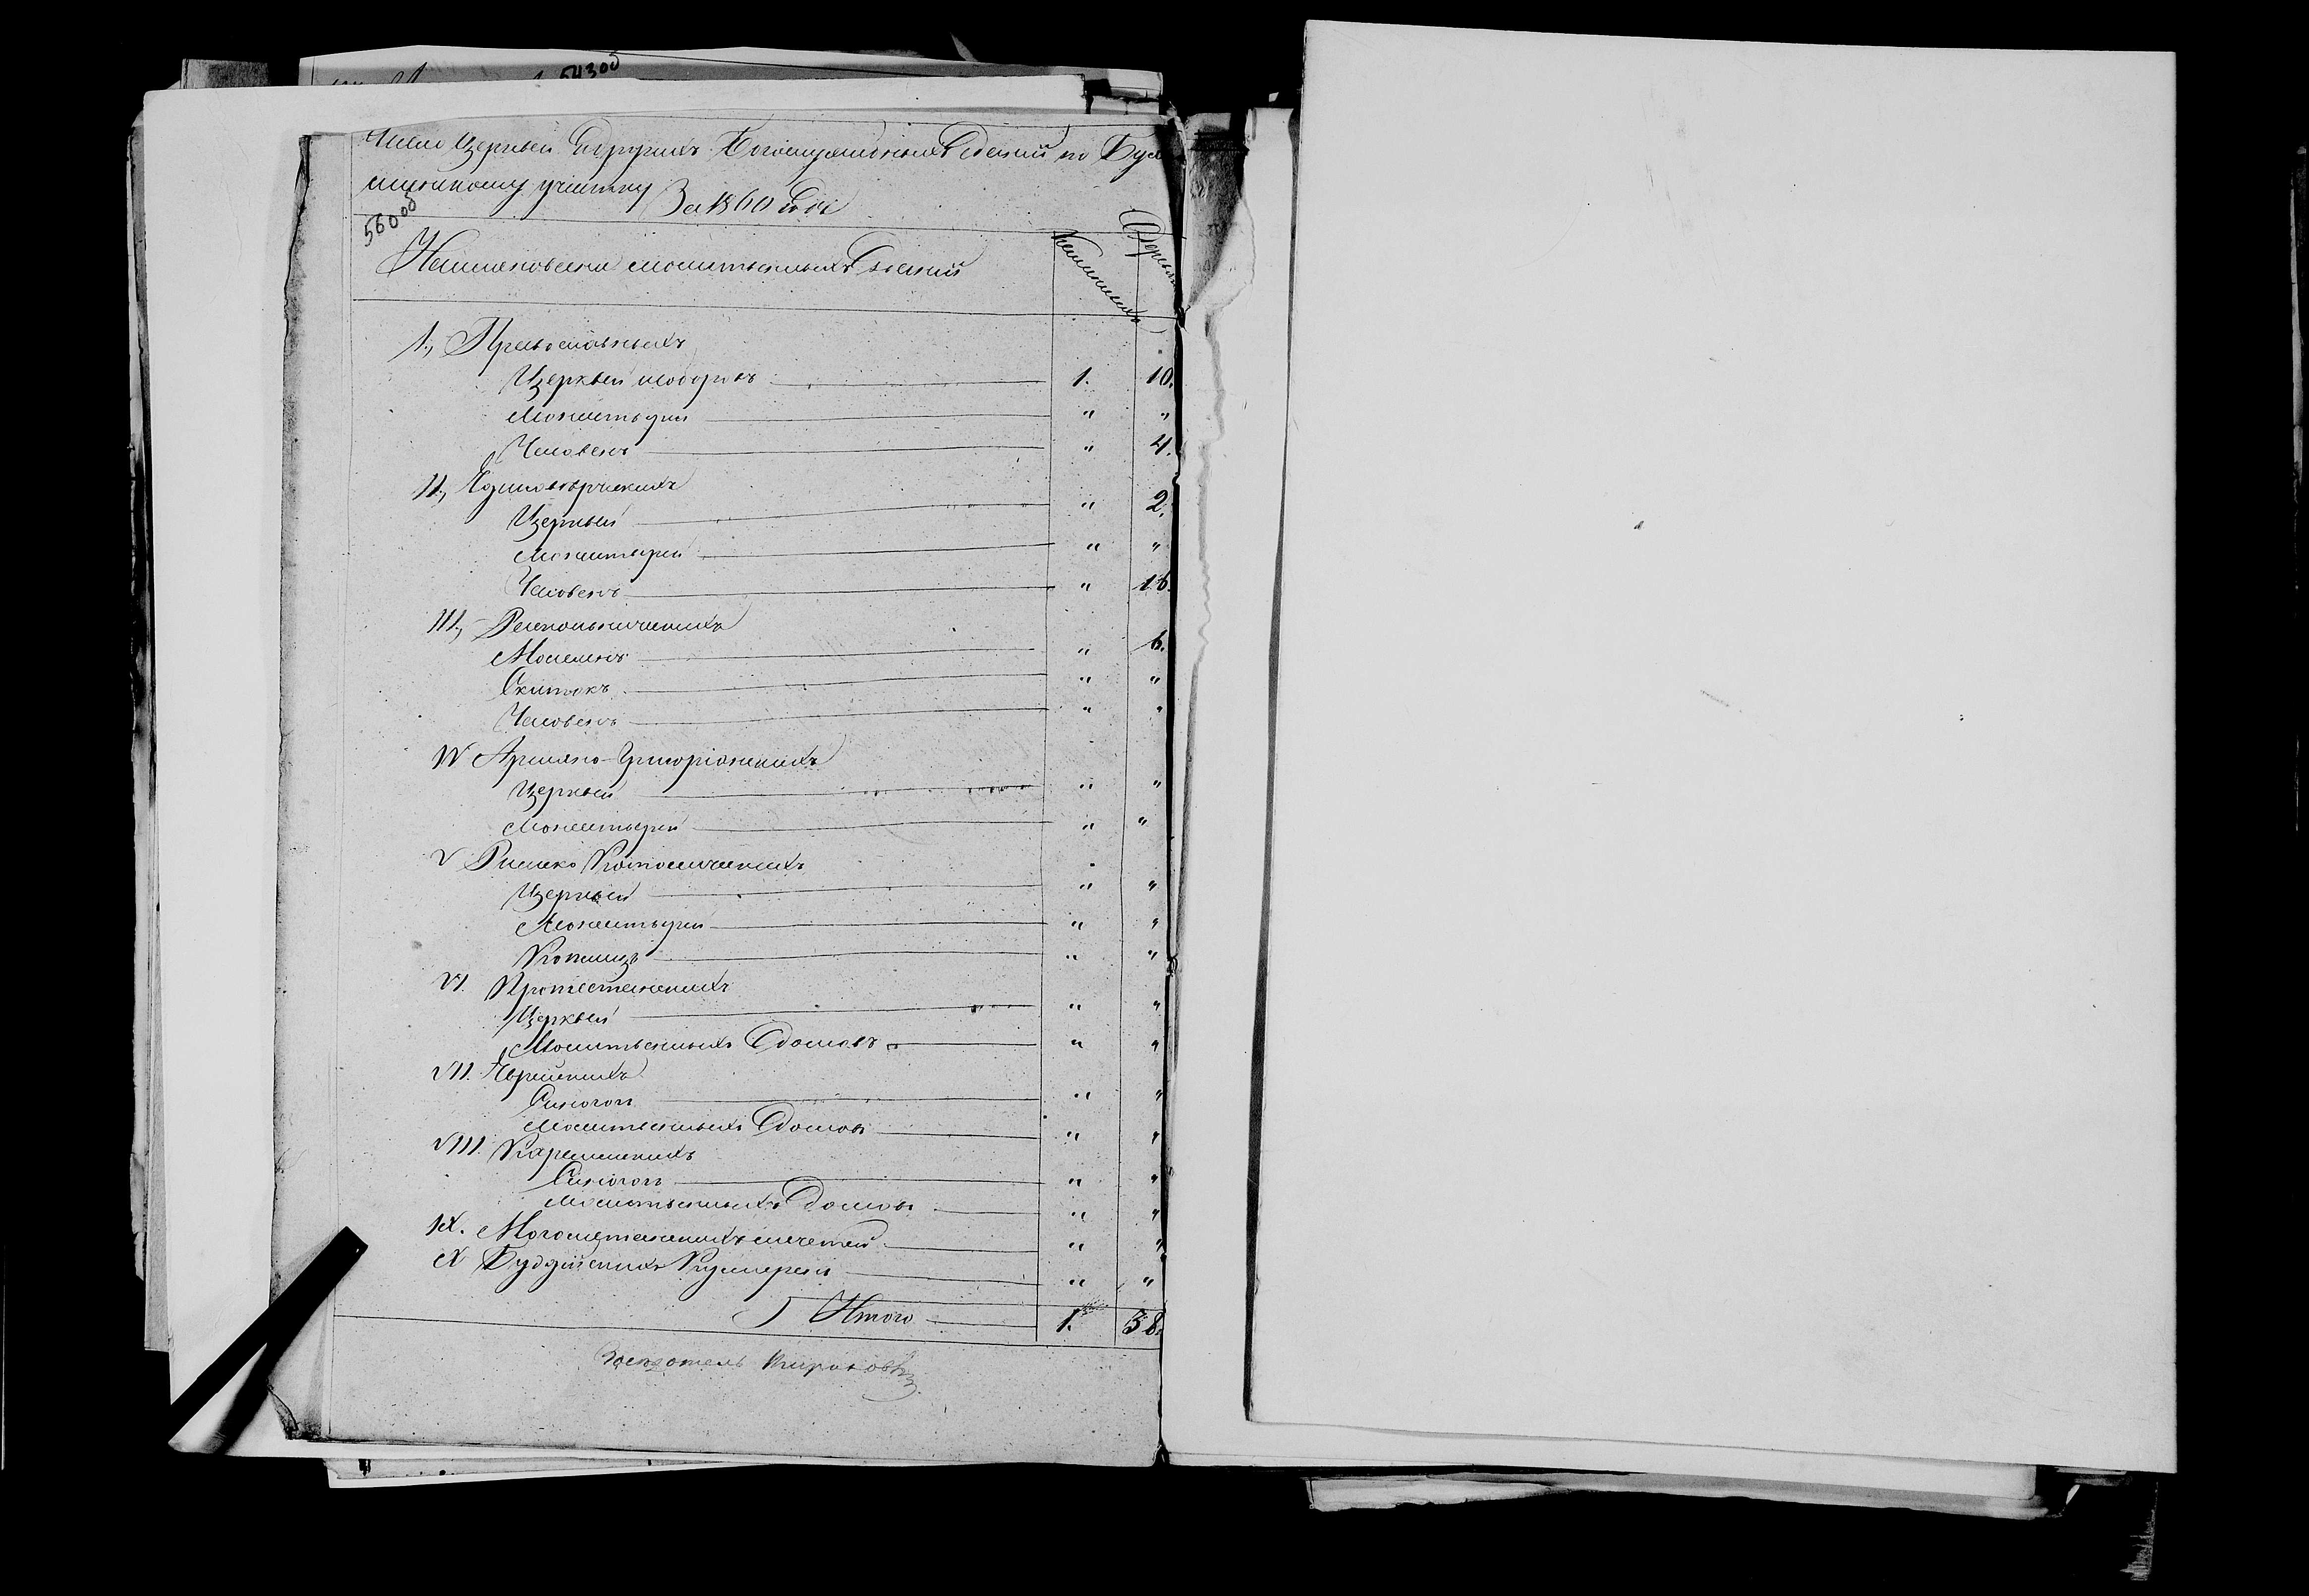 543об
Число Церквей и другихъ Богослужебныхъ зданий по
участку За 1860 годъ
560об
Наименовании молитвенныхъ зданий
Каменныхъ
Дерев
I., Православныхъ
Церквей и соборовъ 1. 10.
Монастырей " "
Часовень " 4.
II., Единоверческихъ
Церквей " 2.
Монастырей " "
Часовень " 16.
III., Раскольническихъ
Молелень " 6.
Скитовъ " "
Часовень " "
IV Армяно-Григоріанскихъ
Церквей " "
Монастырей " "
V Римско Католическихъ
Церквей " "
Монастырей " "
Каплицъ " "
VI. Протестанскихъ
Церквей " "
Молитвенныхъ домовъ " "
VII. Еврейскихъ
Синагогъ " "
Молитвенныхъ домовъ " "
VIII. Караимскихъ
Синагогъ " "
Молитвенныхъ домовъ " "
IX. Магометанскихъ мечетей " "
X Буддійскихъ Кумирень " "
Итого 1. 38.